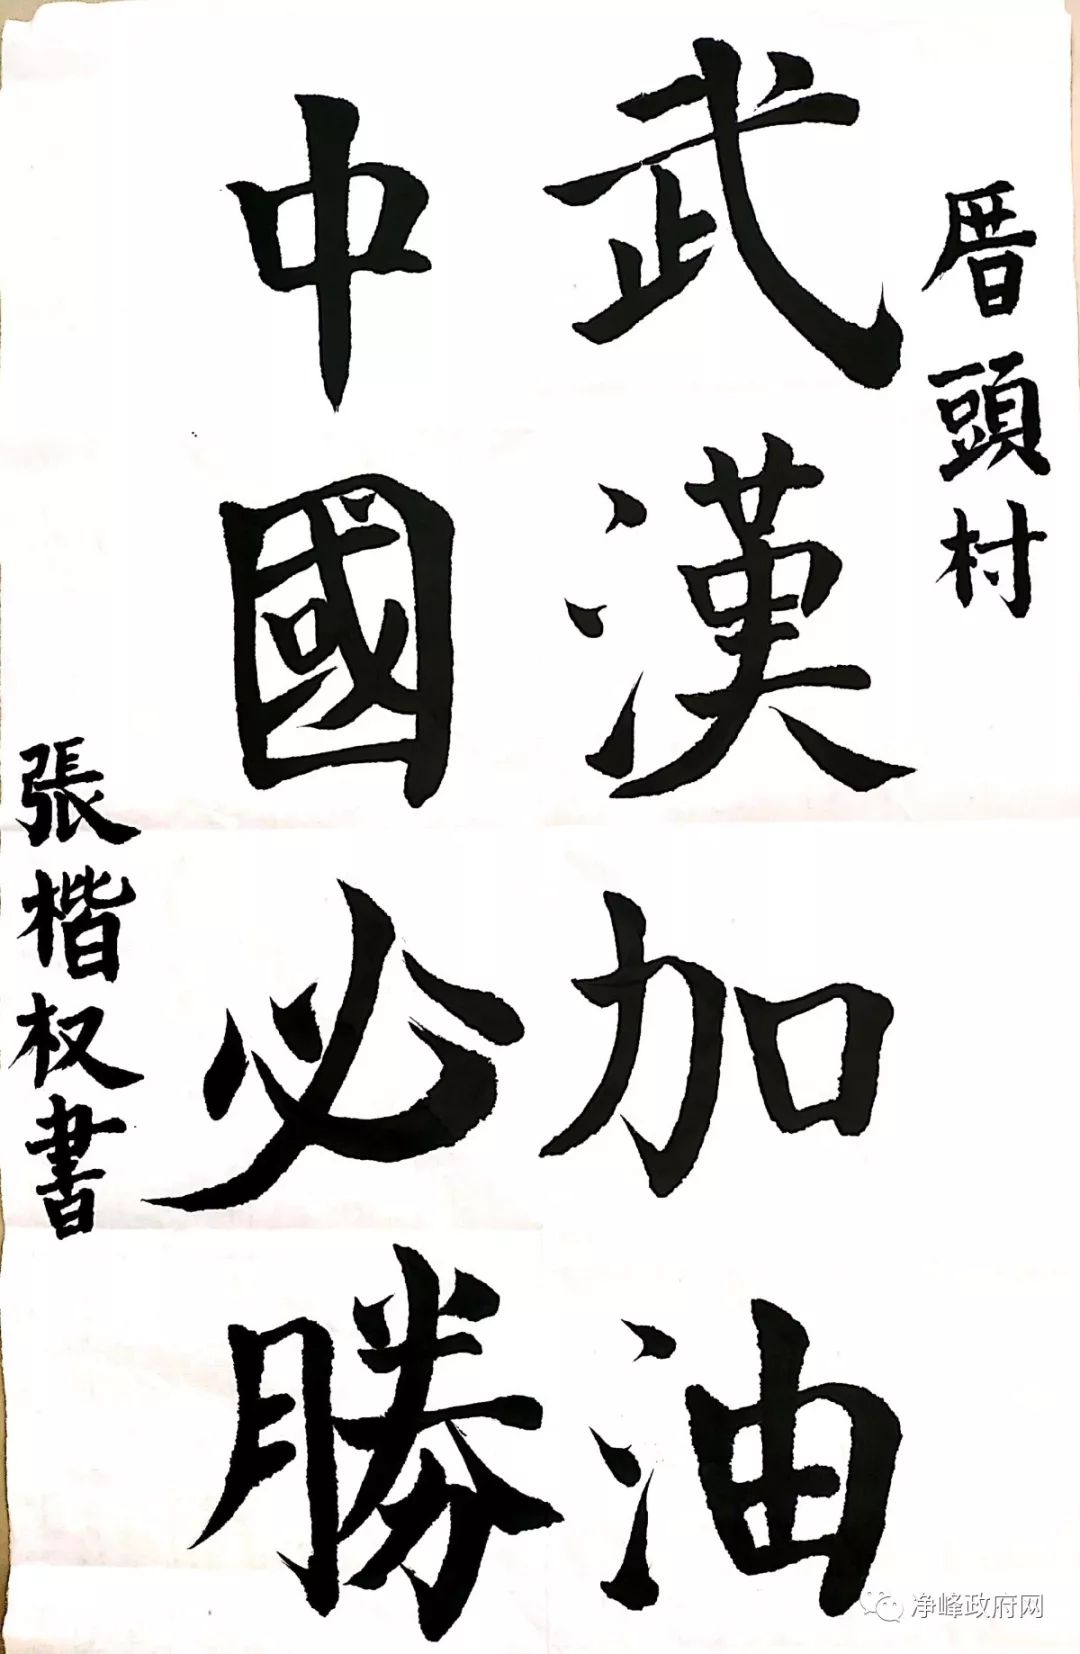 厝頭村
武漢加油
中國必勝
張楷权書
净峰政府网